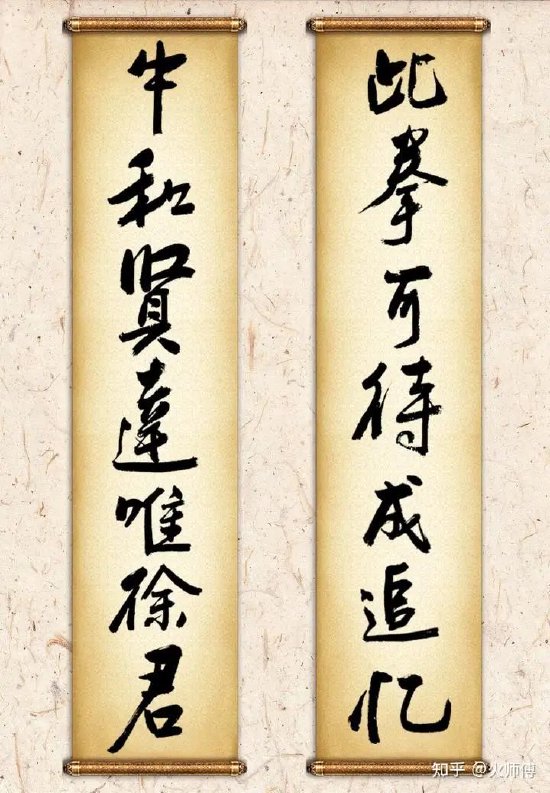 此拳可待成追忆
牛和賢達唯徐君
知乎 @火师傅